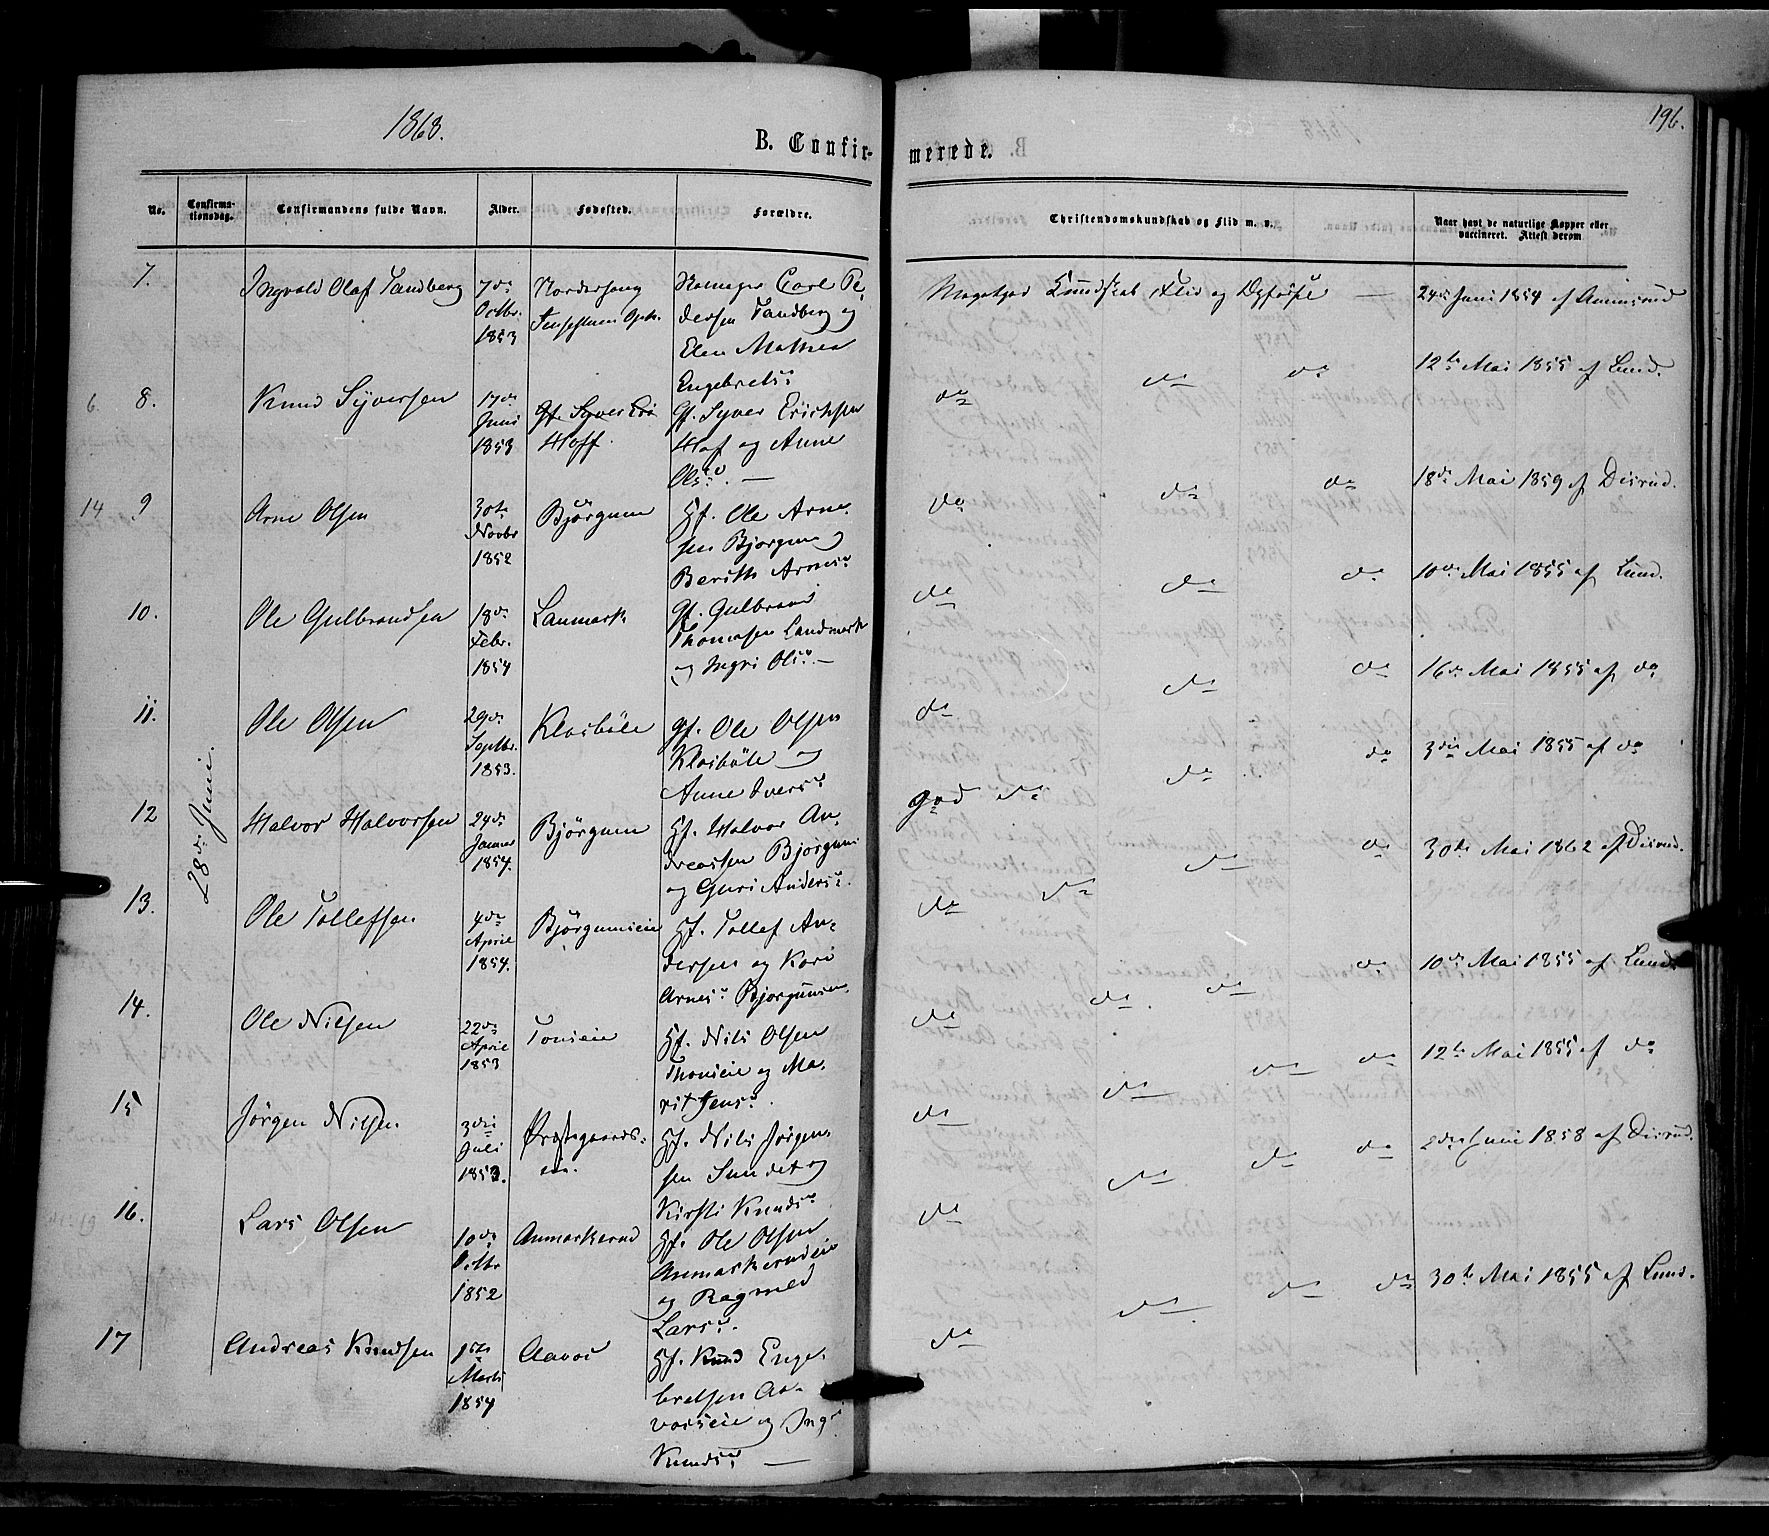 1868.
196.
B. Confir-
merede.
No.
Confirma-
tionsdag.
Confirmandens fulde Navn.
Alder.
Fødested.
Forældre.
Christendomskundskab og Flid m. v.
Naar havt de naturlige Kopper eller
vaccineret. Attest derom
28de Juni.
7. Ingvald Olaf Tandberg
7de
Octbr.
1853
Carl Pe-
dersen Tandberg og
Elen Mathea
Engebrets:
Meget god Kundskab Flid og Opførsel —
24de Juni 1854 af
6. 8. Knud Syversen
17de
Juni
1853
Hoff.
Gf. Syver Erichsen
Hof og Anne
Ols: —
do do do
12te Mai 1855 af Lund.
14 9 Arne Olsen
30te
Novbr
1852
Bjørgum
Hf. Ole Arne-
sen Bjørgum og
Berith Arnes:
do do do
18de Mai 1859 af Disrud.
10. Ole Gulbrandsen
18de
Febr.
1854
Lanmark
Gf. Gulbrand
Thomasen Landmark
og Ingri Ols: —
do do do
10de Mai 1855 af Lund.
11. Ole Olsen
29de
Septbr.
1853.
Klosbøle
Gf. Ole Olsen
Klosbøle og
Anne Ivers:
do do do
16de Mai 1855 af do
12 Halvor Halvorsen
24de
Januar
1854.
Bjørgum
Hf. Halvor An-
dreassen Bjørgum
og Guri Anders:
god do do do
3die Mai 1855 af do
13. Ole Tollefsen
4de
April
1854.
Bjørgumseie
Hf. Tollef An-
dersen og Kari
Arnes: Bjørgumseie
do do do do
30te Mai 1862 af Disrud.
14. Ole Nilsen
22de
April
1853
Tonseie
Hf. Nils Olsen
Thonseie og Ma-
rit Jens:
do do do do
10de Mai 1855 af Lund
15 Jørgen Nilsen
3die
Juli
1853.
Præstegaards-
eie.
Hf. Nils Jørgen-
sen Sundet og
Kirsti Knuds:
do do do do
12te Mai 1855 af do
16. Lars Olsen
10de
Octbr
1852
Anmarkerud
Hf. Ole Olsen
Anmarkerudeie
og Ragnild
Lars:
do do do do
Juni 1858 af Disrud.
17 Andreas Knudsen
1ste
Marts
1854
Hf. Knud Enge-
bretsen Aa-
vorseie og Ing:
Knuds: —
do do do do
30te Mai 1855 af Lund.